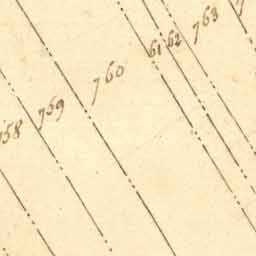 758 759 760 61 62 763